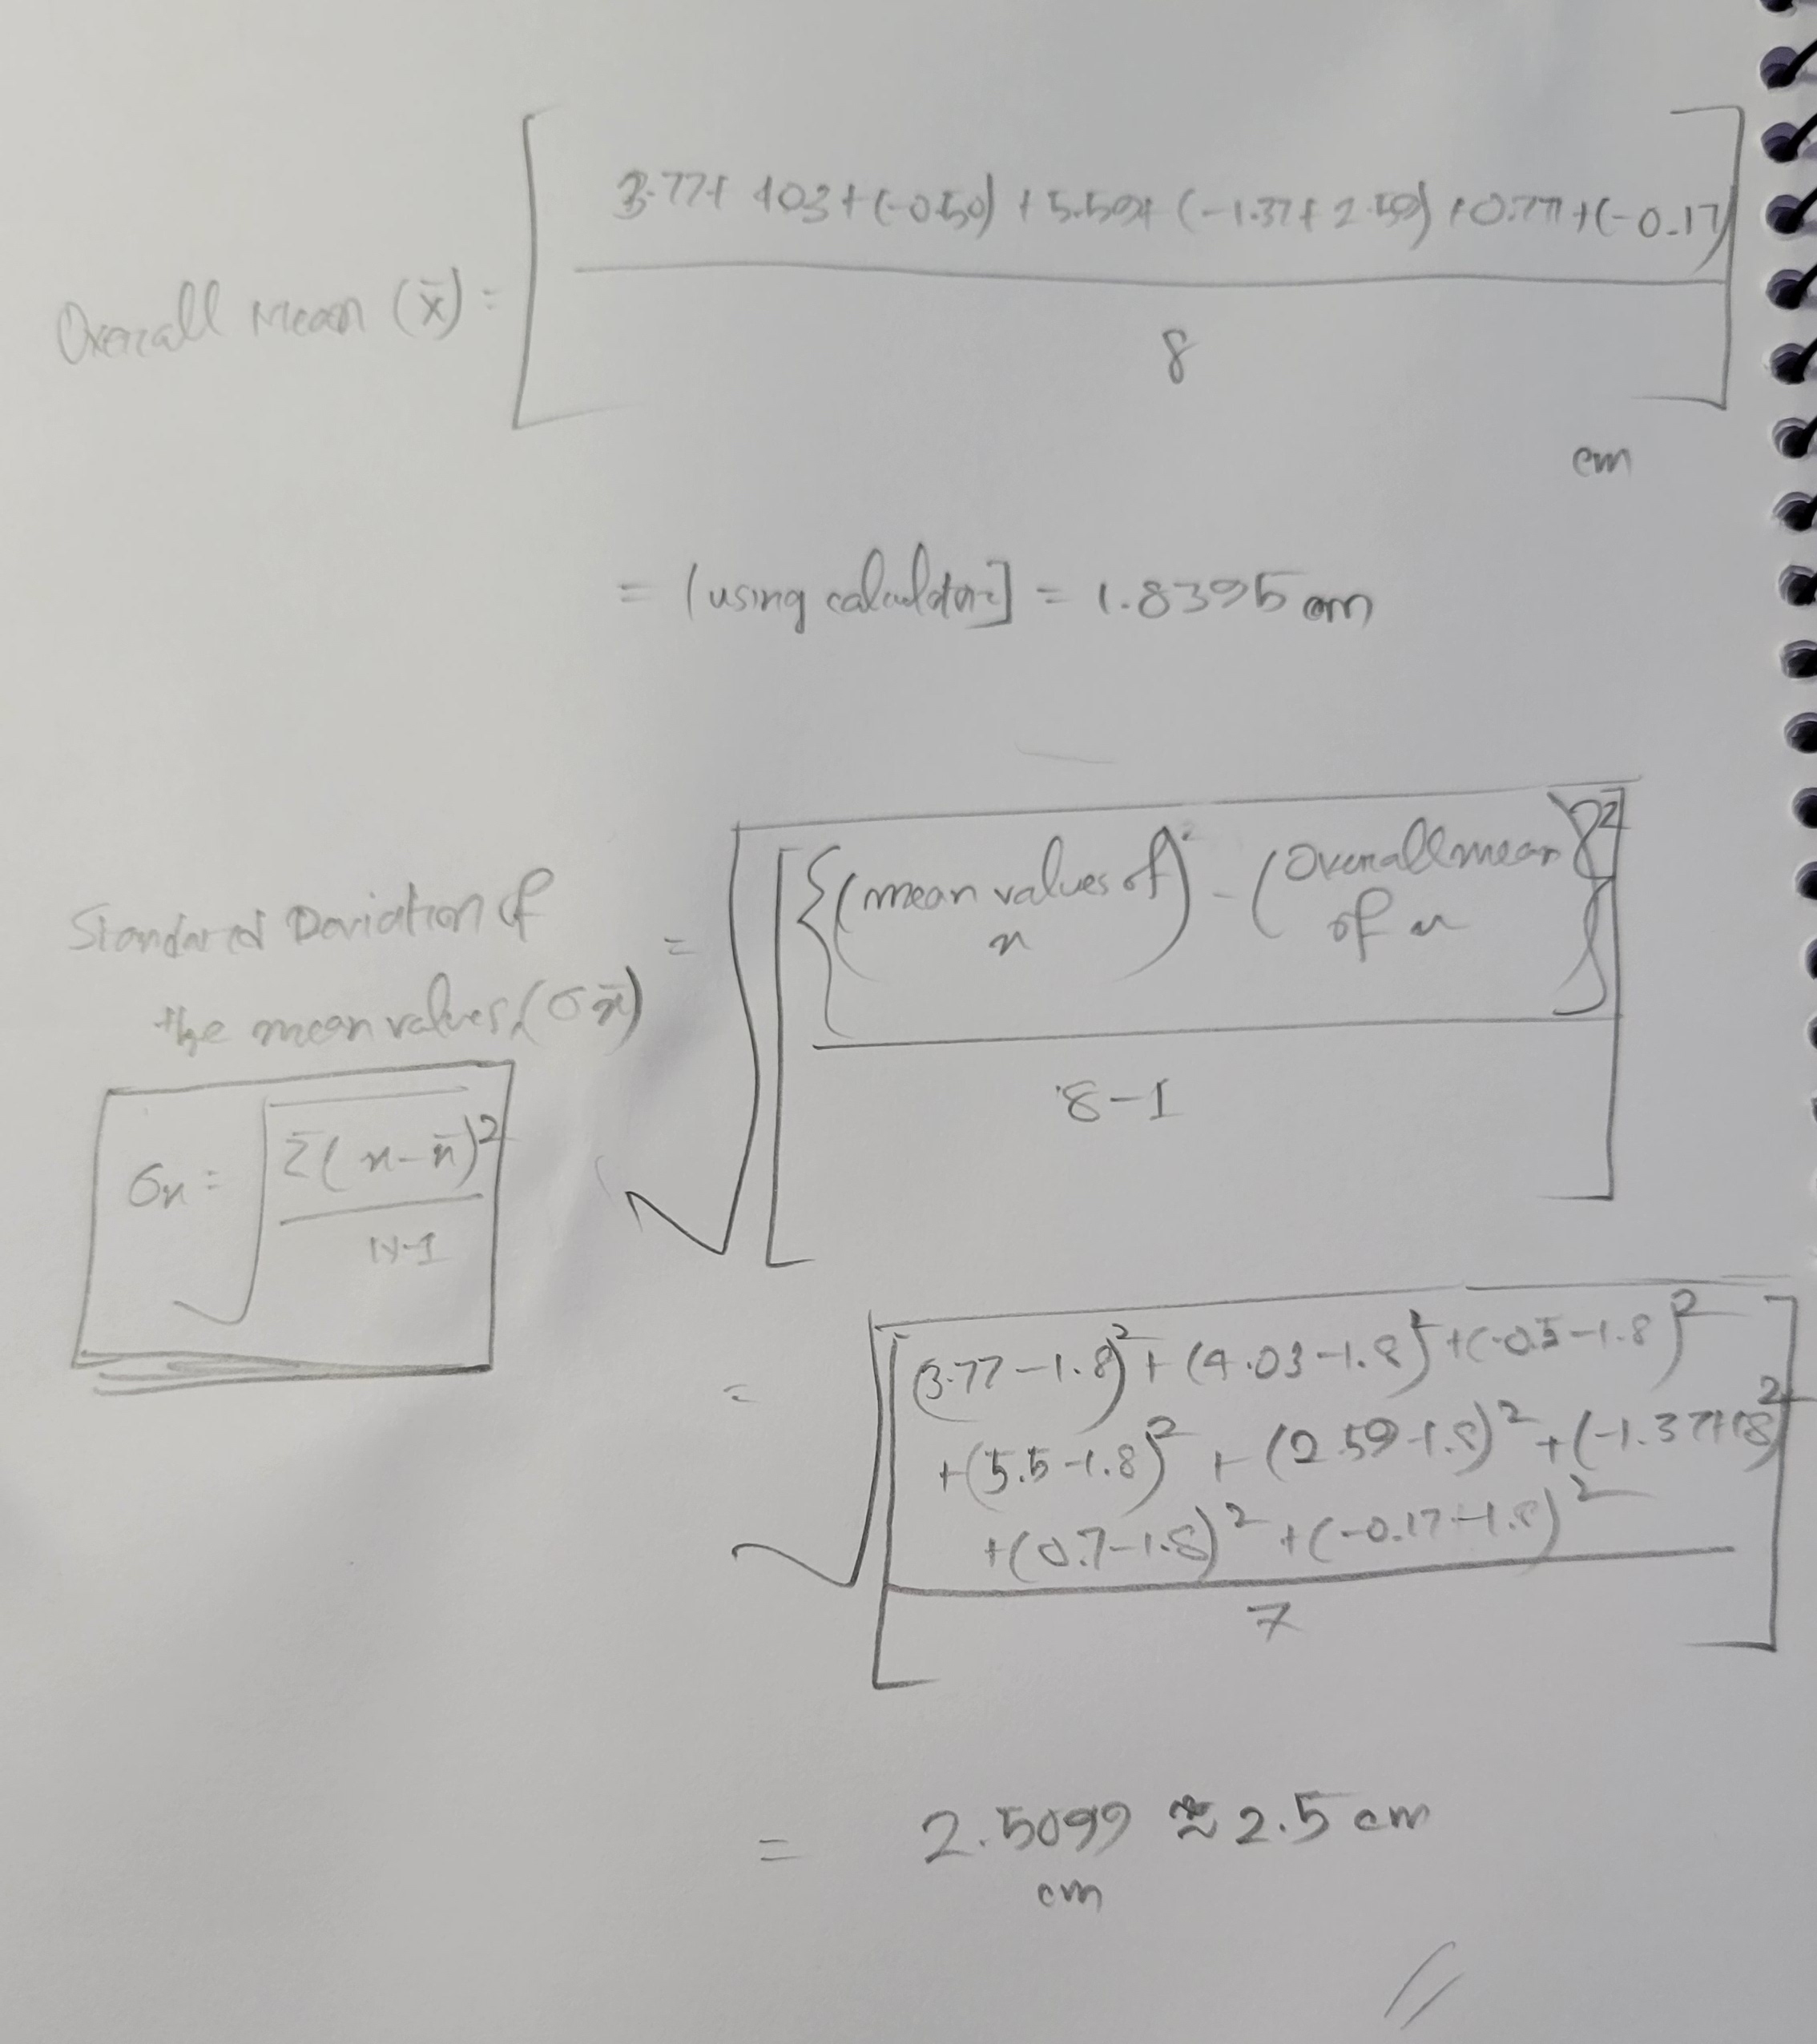 3.77+ 403+(-0.50)+5.50+(-1.37+2.59)+0.77+(-0.17)
Overall Mean (x̄) =
8
cm
= (using calculator] = 1.8395 cm
Standard Deviation of
the mean values (σx̄)
= √[{(mean values of x) - (Overall mean of x)}²
8-1
σx = √Σ(x-x̄)²
N-1
= √[(3.77-1.8)²+(4.03-1.8)²+(-0.5-1.8)²
+(5.5-1.8)²+(2.59-1.8)²+(-1.37+1.8)²
+(0.7-1.8)²+(-0.17-1.8)²
7
= 2.5099 ≈ 2.5 cm
cm